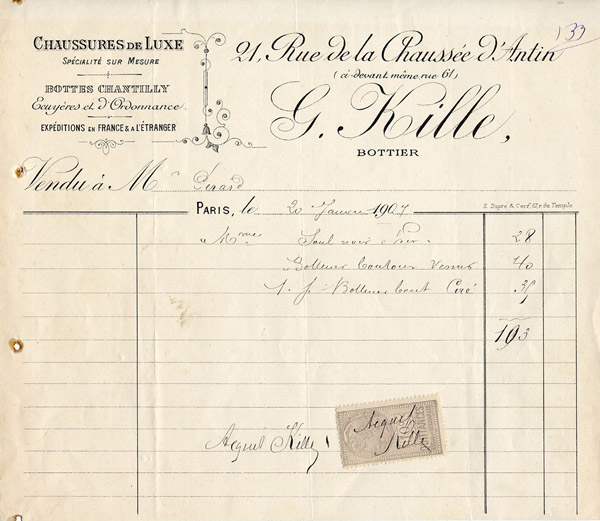 133
CHAUSSURES DE LUXE
SPÉCIALITÉ SUR MESURE
BOTTES CHANTILLY
Ecuyères et d'Ordonnance.
EXPÉDITIONS EN FRANCE & A L'ÉTRANGER
21, Rue de la Chaussée d'Antin
(ci-devant même rue 61)
G. Kille,
BOTTIER
Vendu à M
PARIS, le 20 Janvier 1907
E. Dupré & Cerf, 67, r. du Temple
Mme noir 28
Vernis 40
1 p Ciré 35
103
Acquit Kille
Acquit
Kille
QUITTANCES